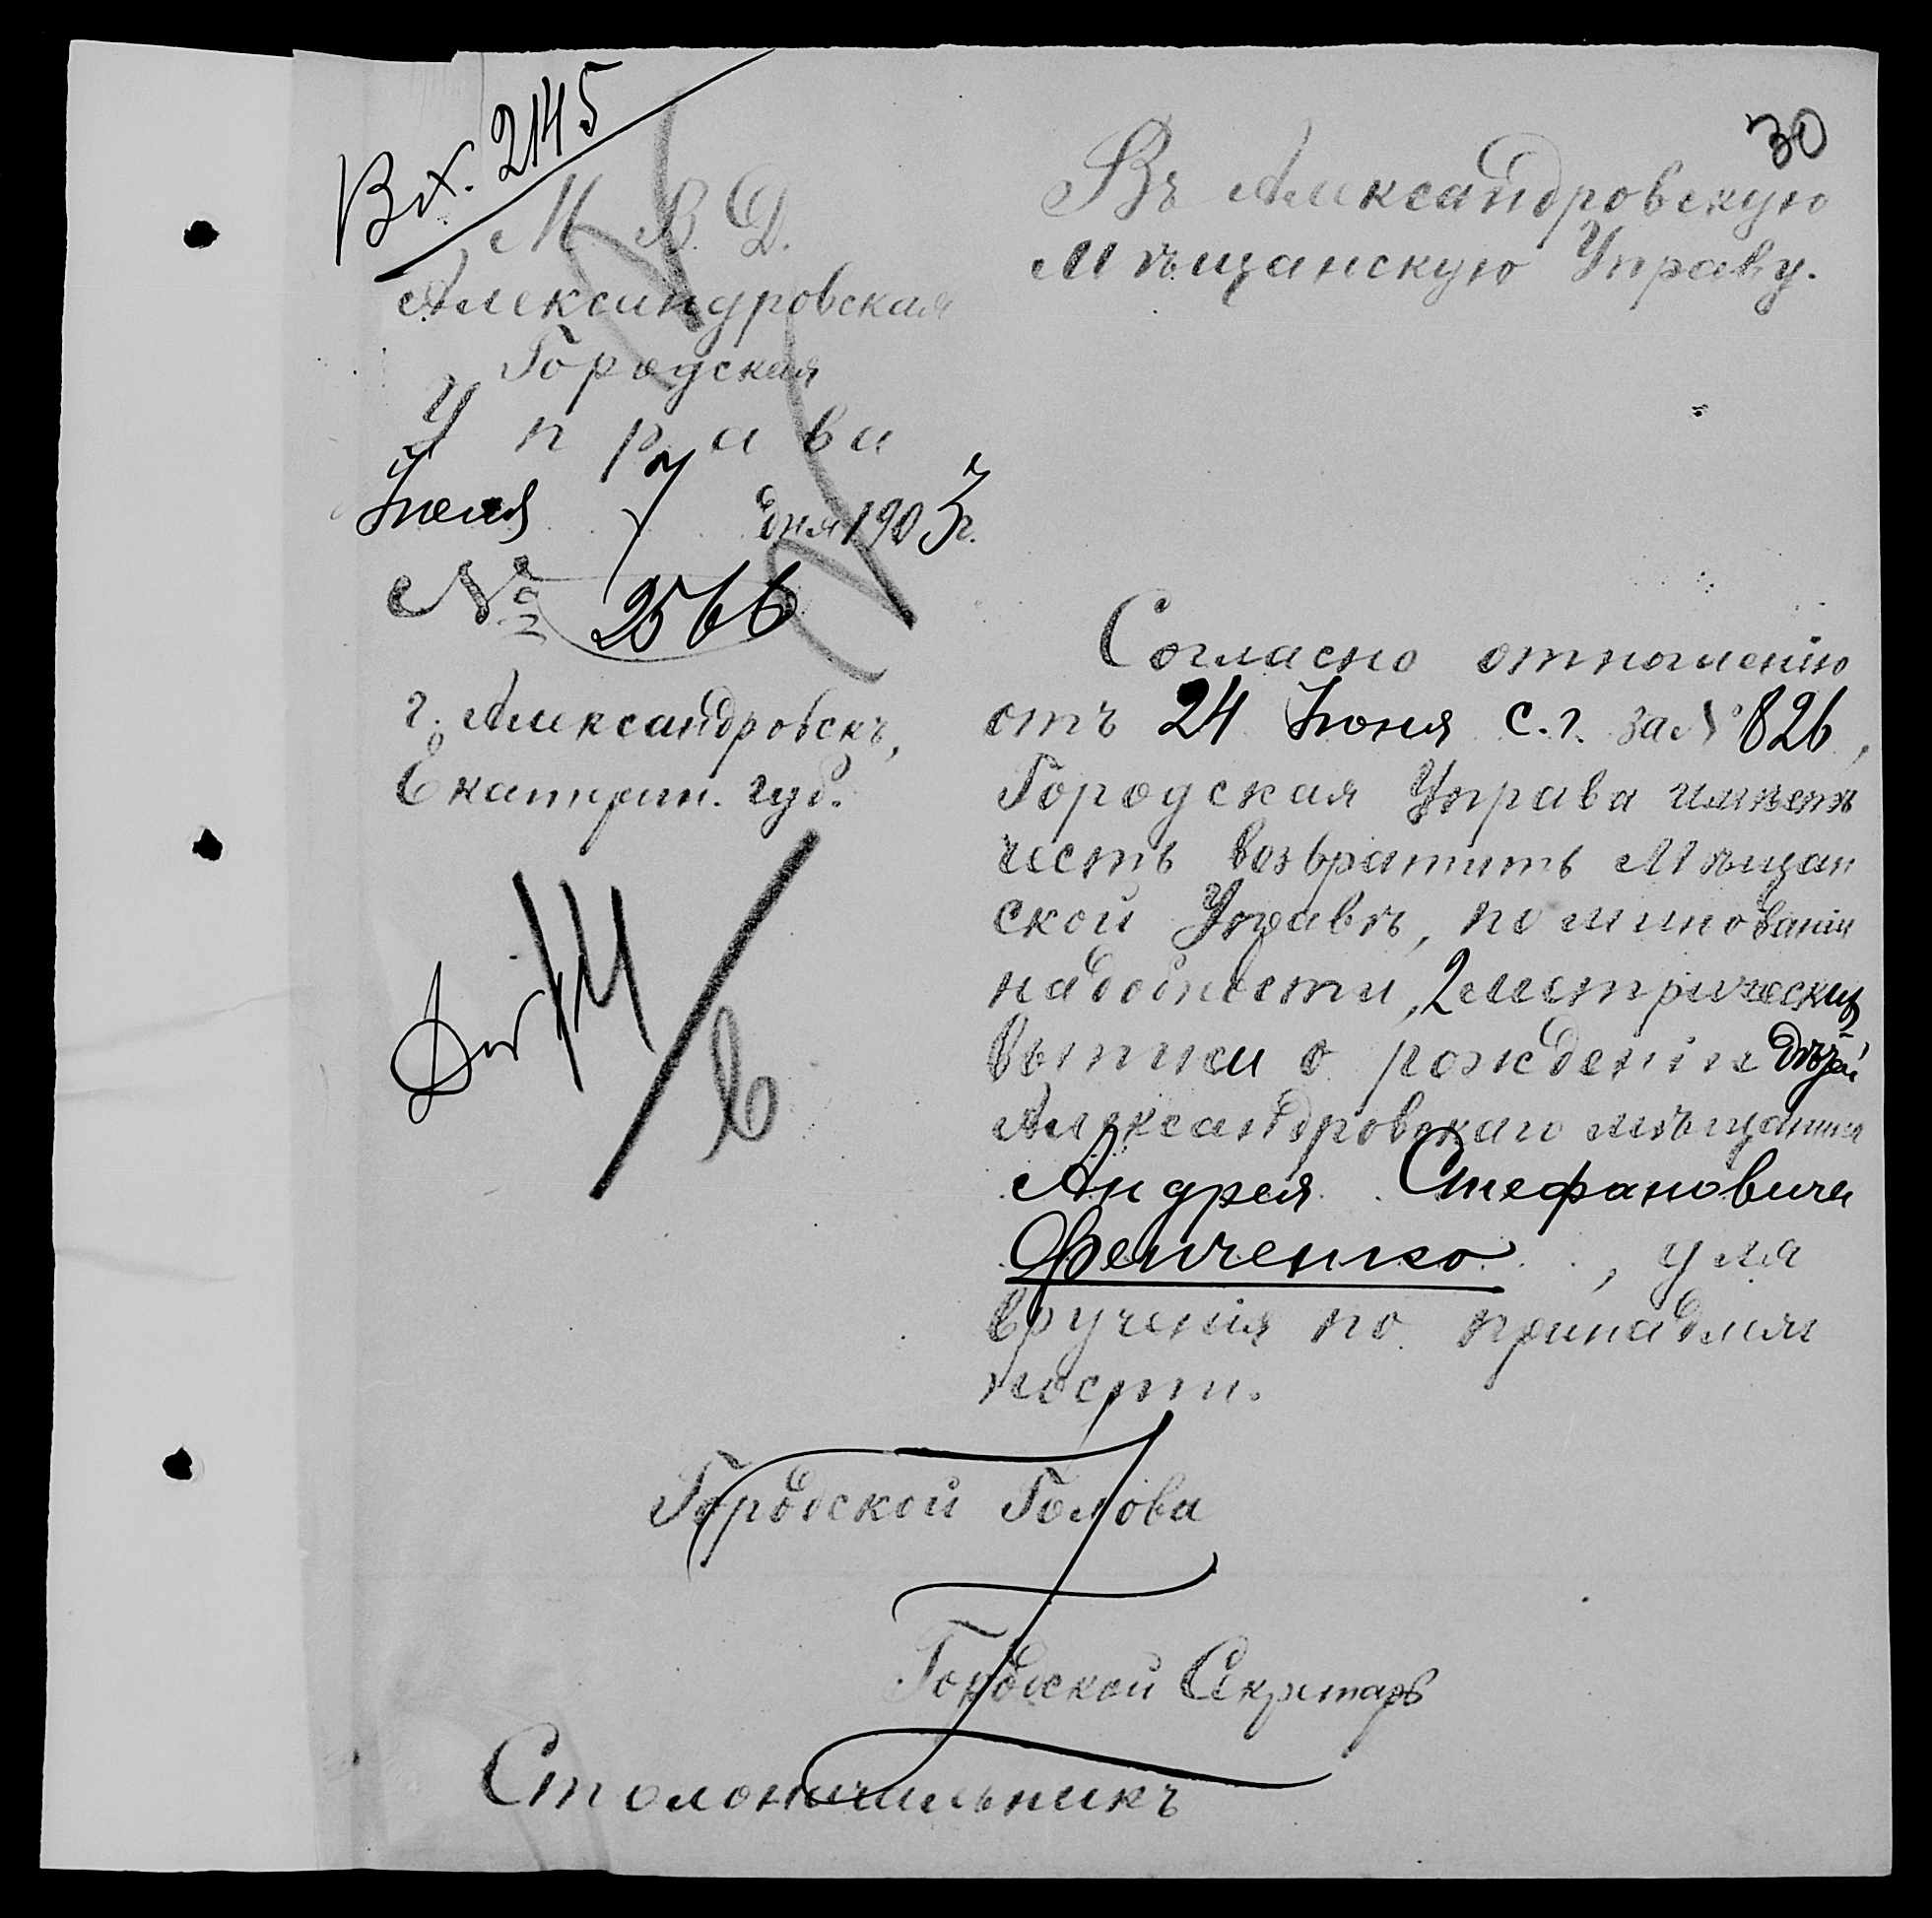 Вх. 2145
30
М. В. Д.
Александровская
Городская
Управа
Іюля 7 дня 1903 г.
№ 2566
г. Александровскъ,
Екатерин. губ.
Въ Александровскую
Мѣщанскую Управу.
Согласно отношенію
отъ 24 Іюня с. г. за № 826,
Городская Управа имѣетъ
честь возвратить Мѣщан
ской Управѣ, по минованіи
надобности, 2 метрическія
выписи о рожденіи дѣтей
Александровскаго мѣщанина
Андрея Стефановича
Фенченко, для
врученія по принадлеж
ности.
Городской Голова
Городской Секретарь
Столоначальникъ